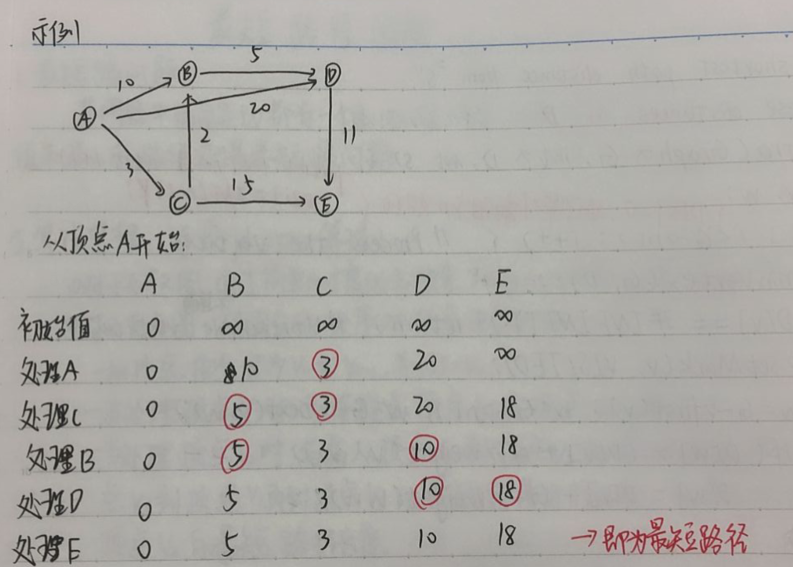 示例
10 B 5 D
A 20
2 11
3
C 15 E
从顶点A开始:
A B C D E
初始值 0 ∞ ∞ ∞ ∞
处理A 0 10 3 20 ∞
处理C 0 5 3 20 18
处理B 0 5 3 10 18
处理D 0 5 3 10 18
处理E 0 5 3 10 18 →即为最短路径